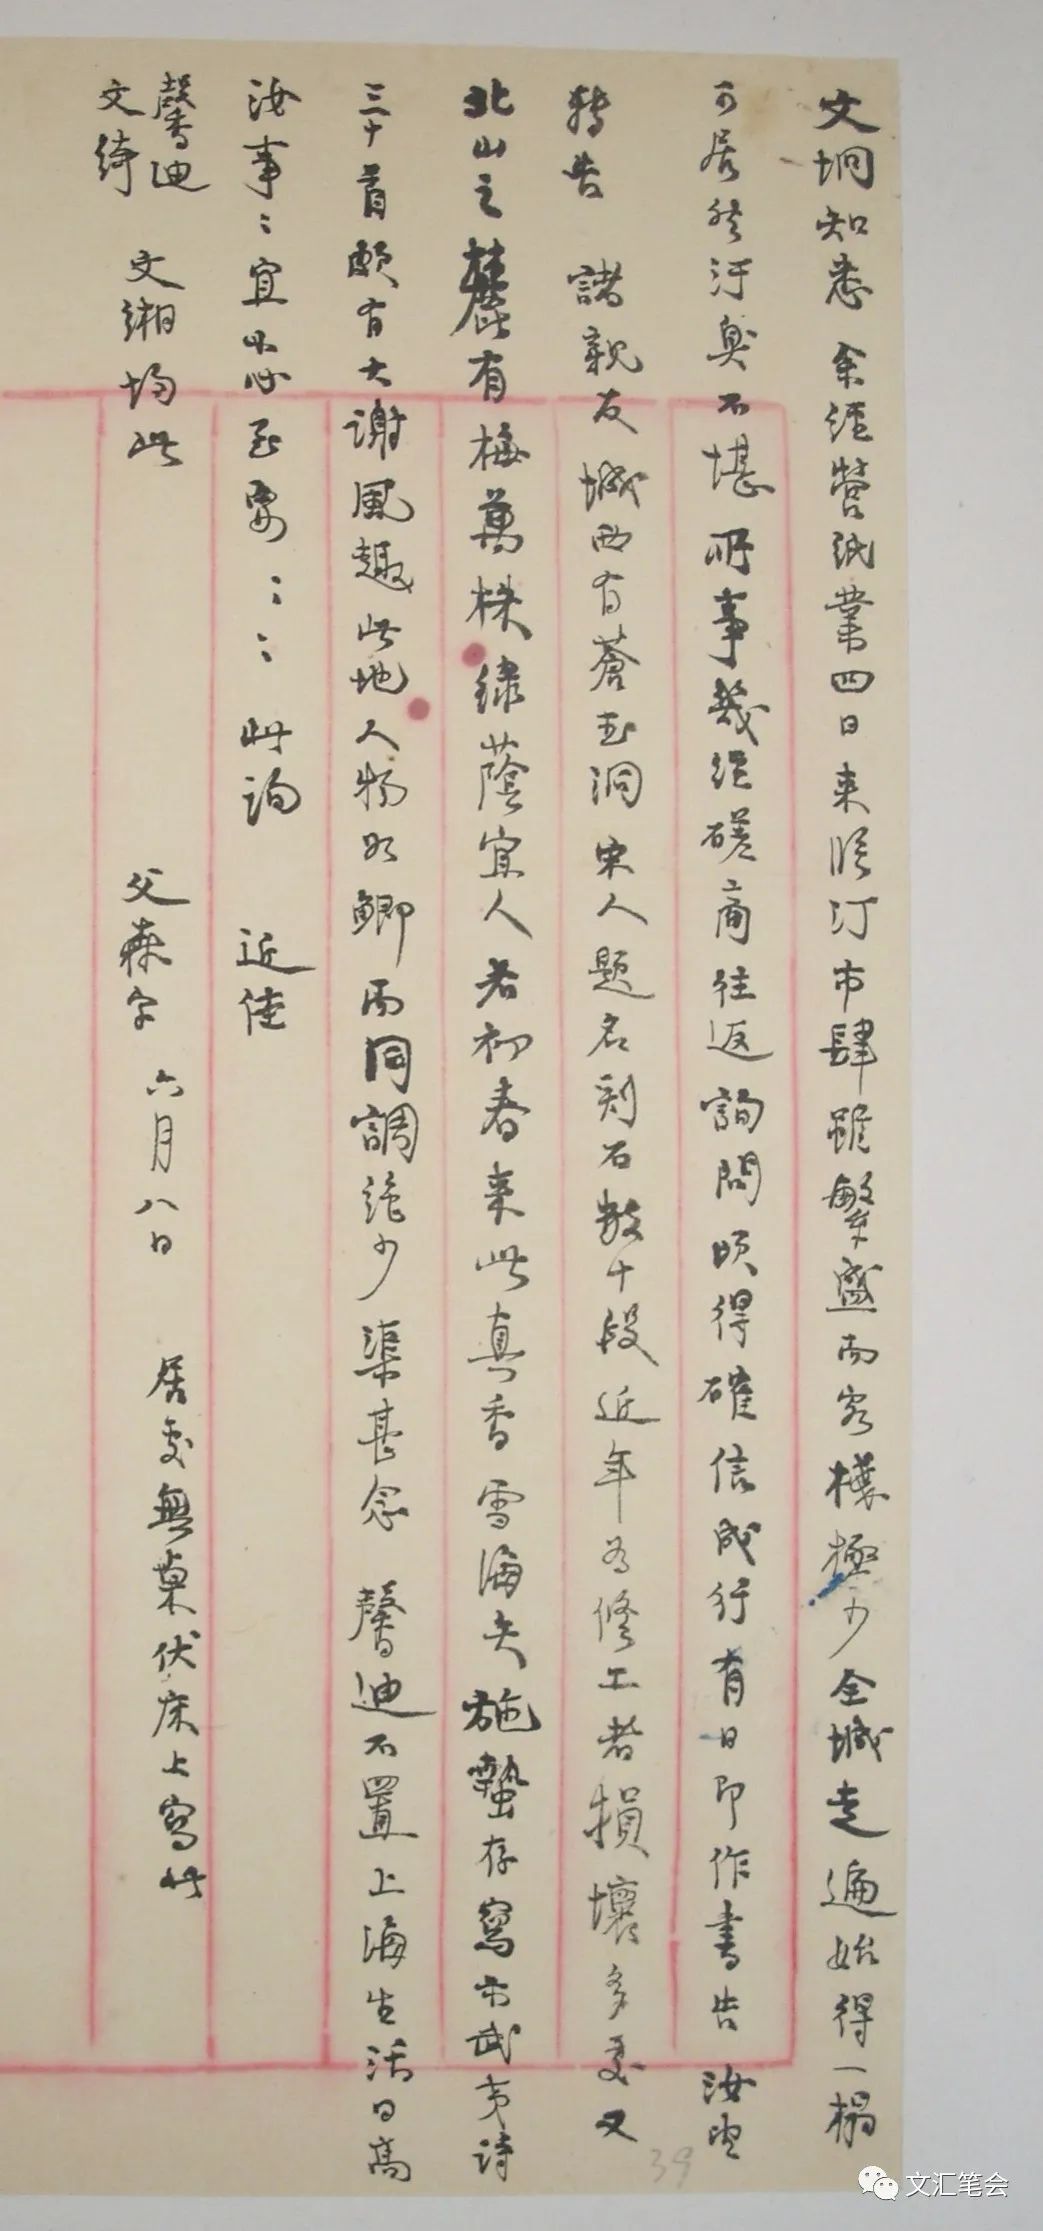 文垌知悉 余經營紙業四日來臨汀市肆雖繁盛而客棧極少全城走遍始得一榻
可居然汙臭不堪所事幾經磋商往返詢問頃得確信成行有日即作書告汝望
轉告 諸親友城西有蒼玉洞宋人題名刻石數十段近年為修工者損壞多處又
北山之麓有梅萬株綠蔭宜人若初春來此真香雪海矣施蟄存寫示武夷詩
三十首頗有大謝風趣此地人物如鯽而同調絕少渠甚念 馨迪不置上海生活日高
汝事〻宜小心至要〻〻 此詢 近佳
馨迪
文綺 文緗均此 父森字 六月八日 居處無菓伏床上寫此
39
文汇笔会